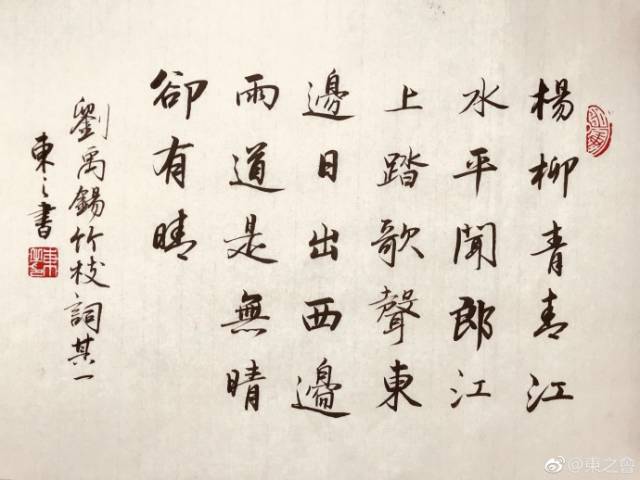 楊柳青青江
水平聞郎江
上踏歌聲東
邊日出西邊
雨道是無晴
卻有晴
劉禹錫竹枝詞其一
東之書
@東之會